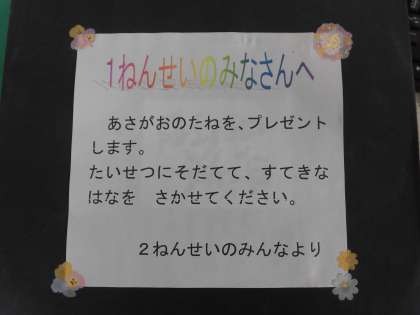 1ねんせいのみなさんへ
あさがおのたねを、プレゼント
します。
たいせつにそだてて、すてきな
はなを　さかせてください。
２ねんせいのみんなより